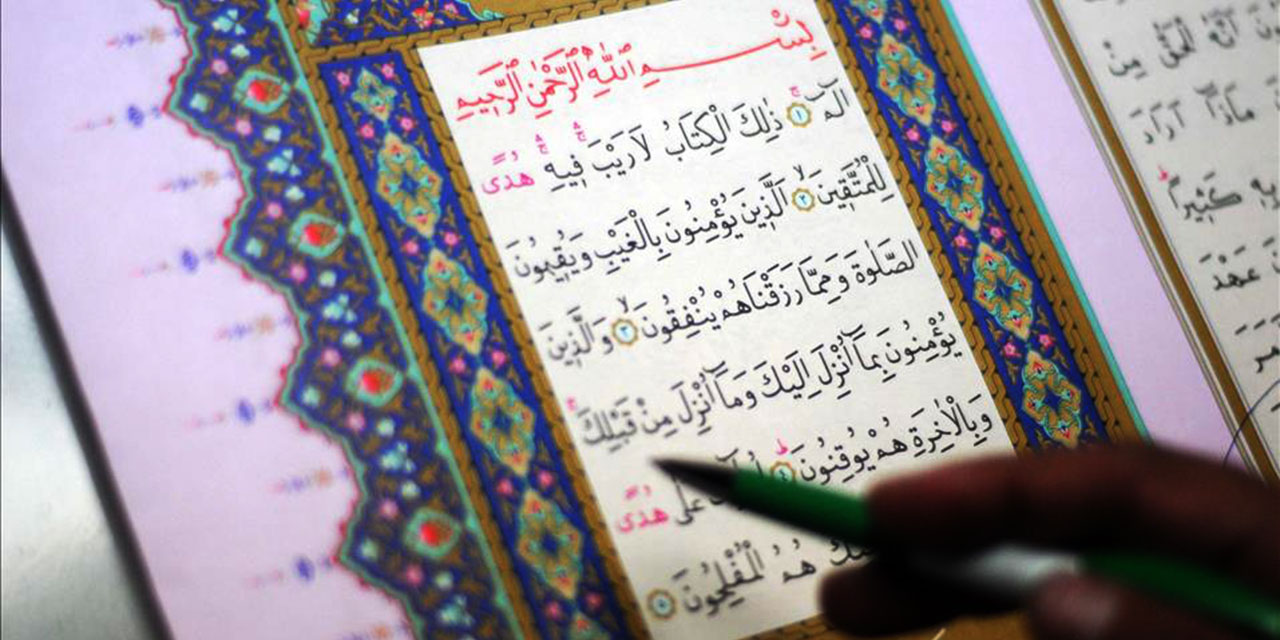 بِسْمِ اللهِ الرَّحْمٰنِ الرَّحِيمِ
الٓمٓ ۚ ﴿١﴾ ذٰلِكَ الْكِتَابُ لَا رَيْبَ ۛ فِيهِ ۛ هُدًى
لِلْمُتَّقِينَ ۙ ﴿٢﴾ اَلَّذِينَ يُؤْمِنُونَ بِالْغَيْبِ وَيُقِيمُونَ
الصَّلٰوةَ وَمِمَّا رَزَقْنَاهُمْ يُنْفِقُونَ ۙ ﴿٣﴾ وَالَّذِينَ
يُؤْمِنُونَ بِمَٓا اُنْزِلَ اِلَيْكَ وَمَٓا اُنْزِلَ مِنْ قَبْلِكَ ۚ
وَبِالْاٰخِرَةِ هُمْ يُوقِنُونَ ۜ ﴿٤﴾ عَلٰى هُدًى
هُمُ الْمُفْلِحُونَ ﴿٥﴾
اَنَّهُ الْحَقُّ مِنْ
مَاذَٓا اَرَادَ
كَثِيرًا
عَهْدَ